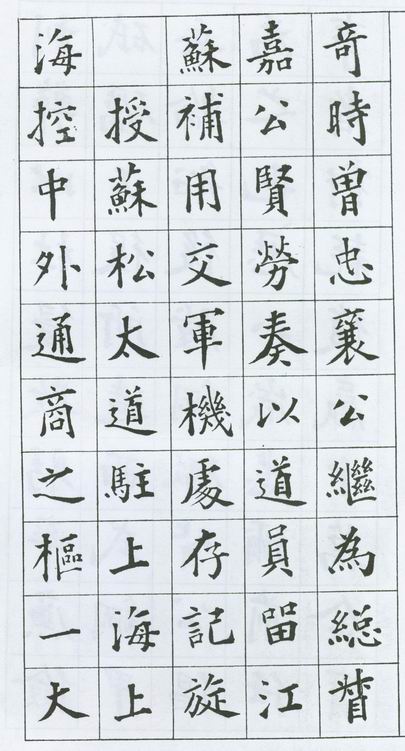 奇時曾忠襄公繼為總督
嘉公賢勞奏以道員留江
蘇補用交軍機處存記旋
授蘇松太道駐上海上
海控中外通商之樞一大